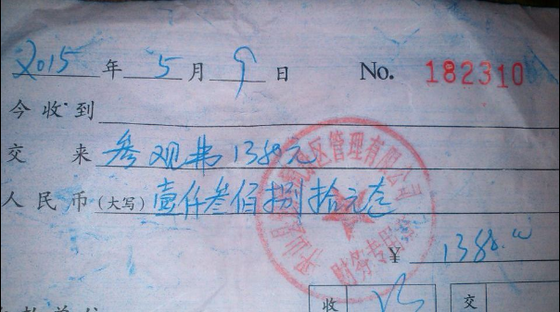 2015年5月9日 No. 182310
今收到
交来 参观费1380元
人民币(大写) 壹仟叁佰捌拾元整
¥ 1380.00
财务专用章
收 交